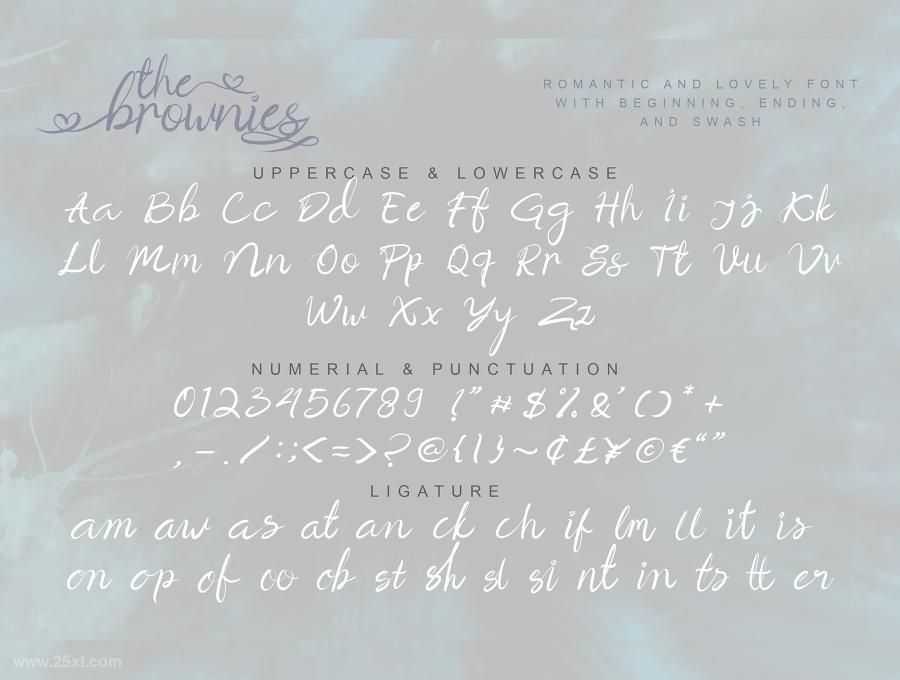 the
brownies
ROMANTIC AND LOVELY FONT
WITH BEGINNING, ENDING,
AND SWASH
UPPERCASE & LOWERCASE
Aa Bb Cc Dd Ee Ff Gg Hh Ii Jj Kk
Ll Mm Nn Oo Pp Qq Rr Ss Tt Uu Vv
Ww Xx Yy Zz
NUMERIAL & PUNCTUATION
0123456789 !"#$%&'()*+
,-./:;<=>?@{|}~¢£¥©€“”
LIGATURE
am aw as at an ck ch if lm ll it is
on op of oo ob st sh sl si nt in ts tt er
www.25xt.com